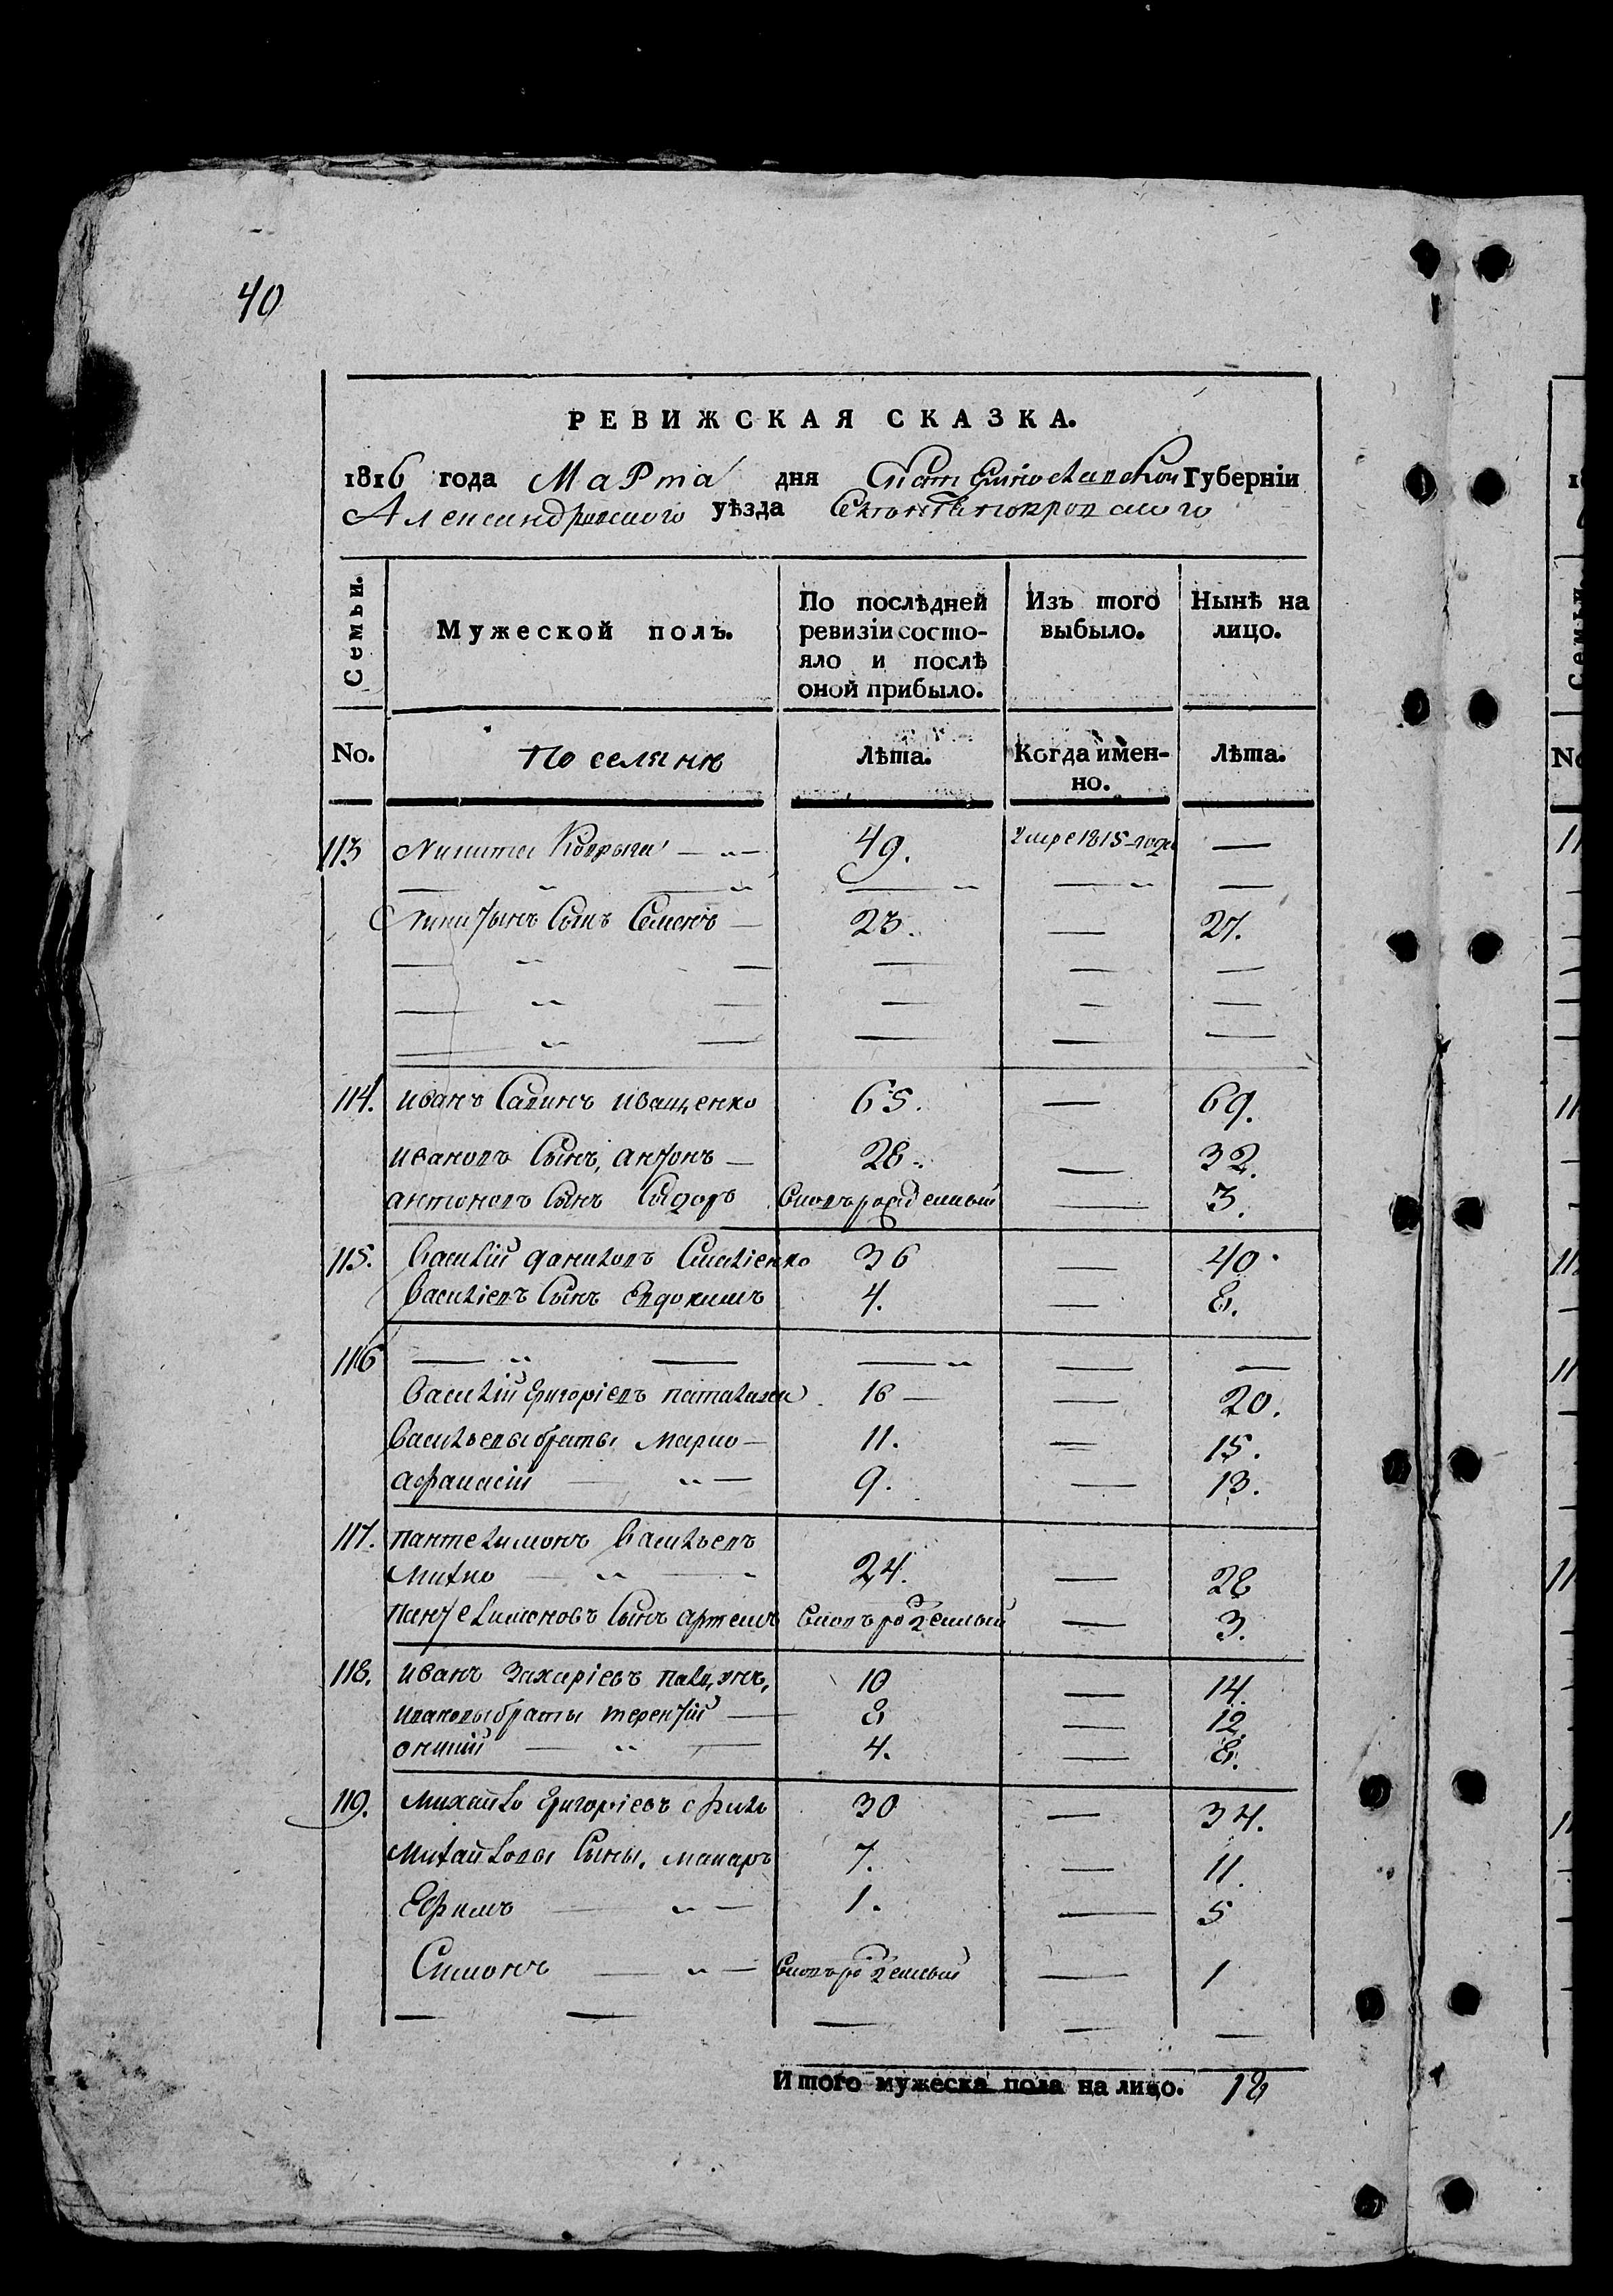 40
РЕВИЖСКАЯ СКАЗКА.
1816 года Марта дня Екатеринославской Губерніи
Александровского уѣзда
Семьи. Мужеской полъ. По послѣдней ревизіи состояло и послѣ оной прибыло. Изъ того выбыло. Нынѣ на лицо.
No. Поселяне Лѣта. Когда именно. Лѣта.
113 Никита 49. умре 1815 года —
Никитынъ Сынъ Семенъ — 23. — 27.
114. иванъ Савинъ иващенко 65. — 69.
ивановъ Сынъ, антонъ — 28. — 32.
антоновъ Сынъ Сидоръ вновърожденный — 3.
115. Василій даниловъ 36 — 40.
Василіевъ Сынъ Евдокимъ 4. — 8.
116 — — — — —
Василій Григоріевъ 16 — — 20.
Васильевы браты Марко — 11. — 15.
афанасій — 9. — 13.
117. пантелимонъ Васильевъ
24. — 28
пантелимоновъ Сынъ артемъ вновърожденный — 3.
118. иванъ Захаріевъ 10 — 14.
ивановы браты терентій — 8 — 12.
4. — 8.
119. Михайло Григоріевъ 30 — 34.
Михайловы Сыны, макаръ 7. — 11.
Ефимъ — 1. — 5
Симонъ — вновърожденный — 1
Итого мужеска пола на лицо. 18